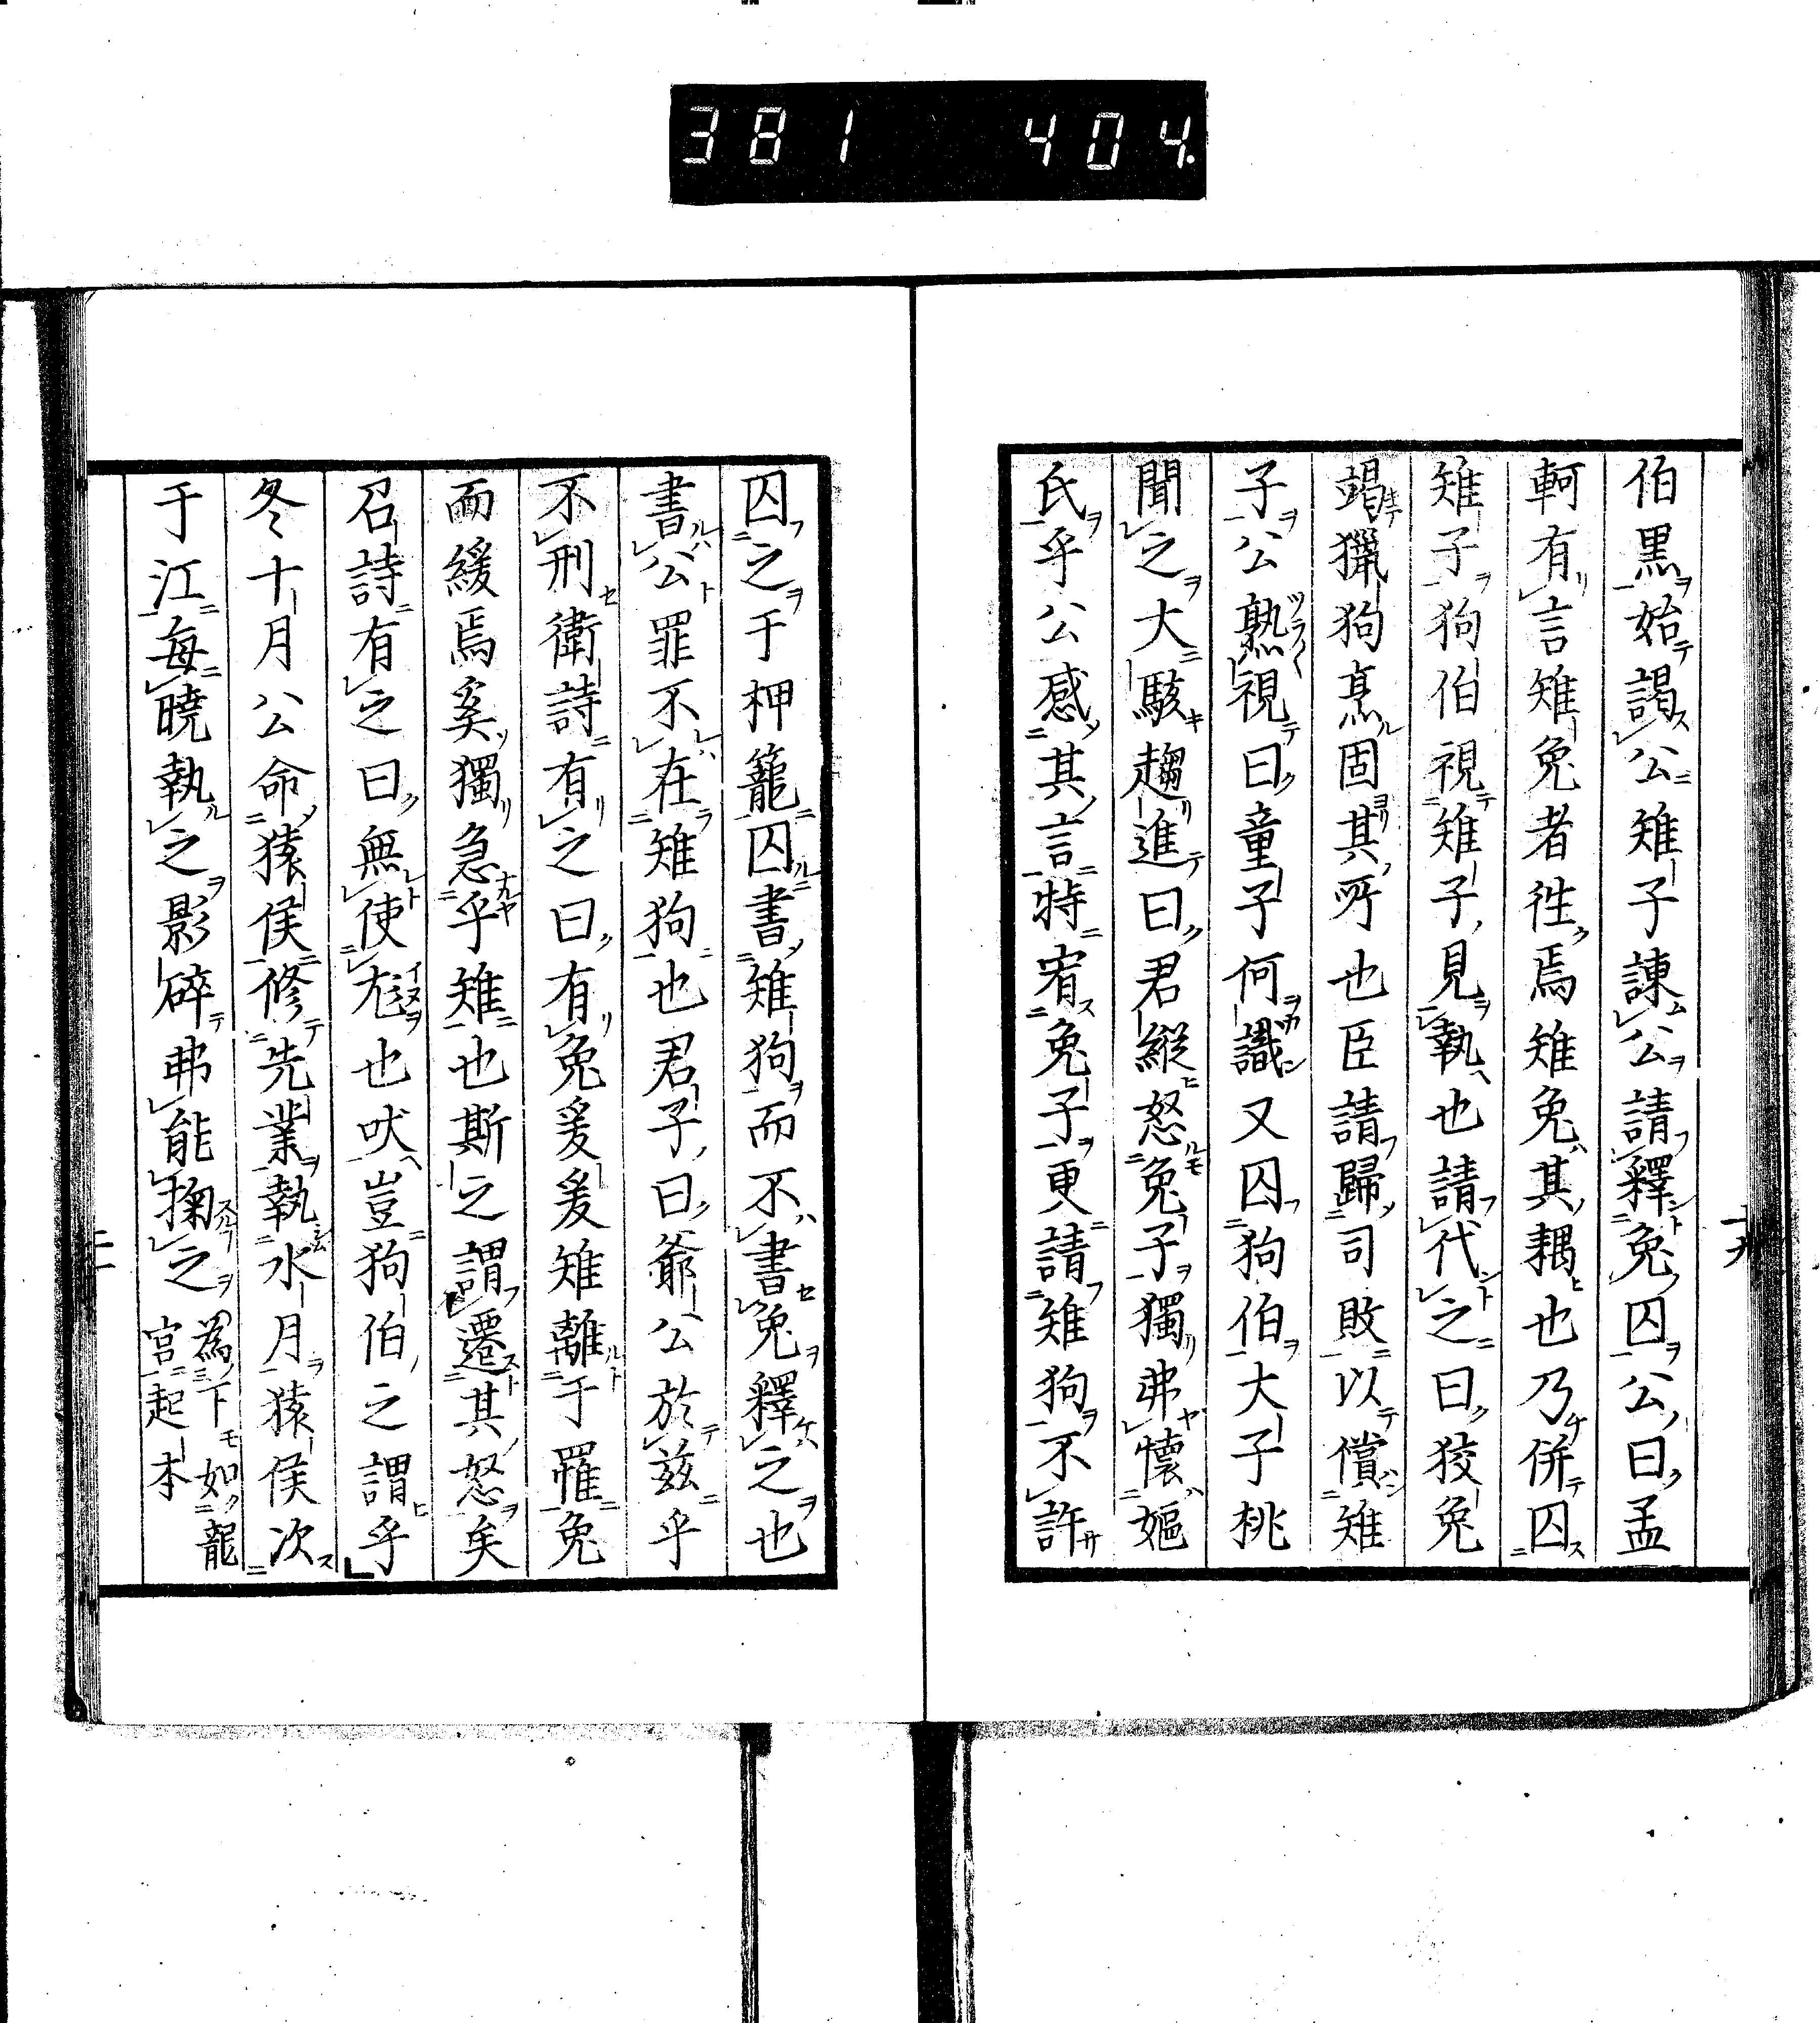 381 404.
伯黒始謁公雉子諌公請釋兔囚公曰孟
軻有言雉兔者徃焉雉兔其耦也乃併囚
雉子狗伯視雉子見執也請代之曰狡兔
竭獵狗烹固其所也臣請歸司敗以償雉
子公熟視曰童子何識又囚狗伯大子桃
聞之大駭趨進曰君縦怒兔子獨弗懷嫗
氏乎公感其言特宥兔子更請雉狗不許
囚之于柙籠囚書雉狗而不書兔釋之也
書公罪不在雉狗也君子曰爺公於茲乎
不刑衛詩有之曰有兔爰爰雉離于罹兔
而緩焉奚獨急乎雉也斯之謂遷其怒矣
召詩有之曰無使尨也吠豈狗伯之謂乎
冬十月公命猿侯修先業執水月猿侯次
于江每曉執之影碎弗能掬之
為下如龍
宮起本